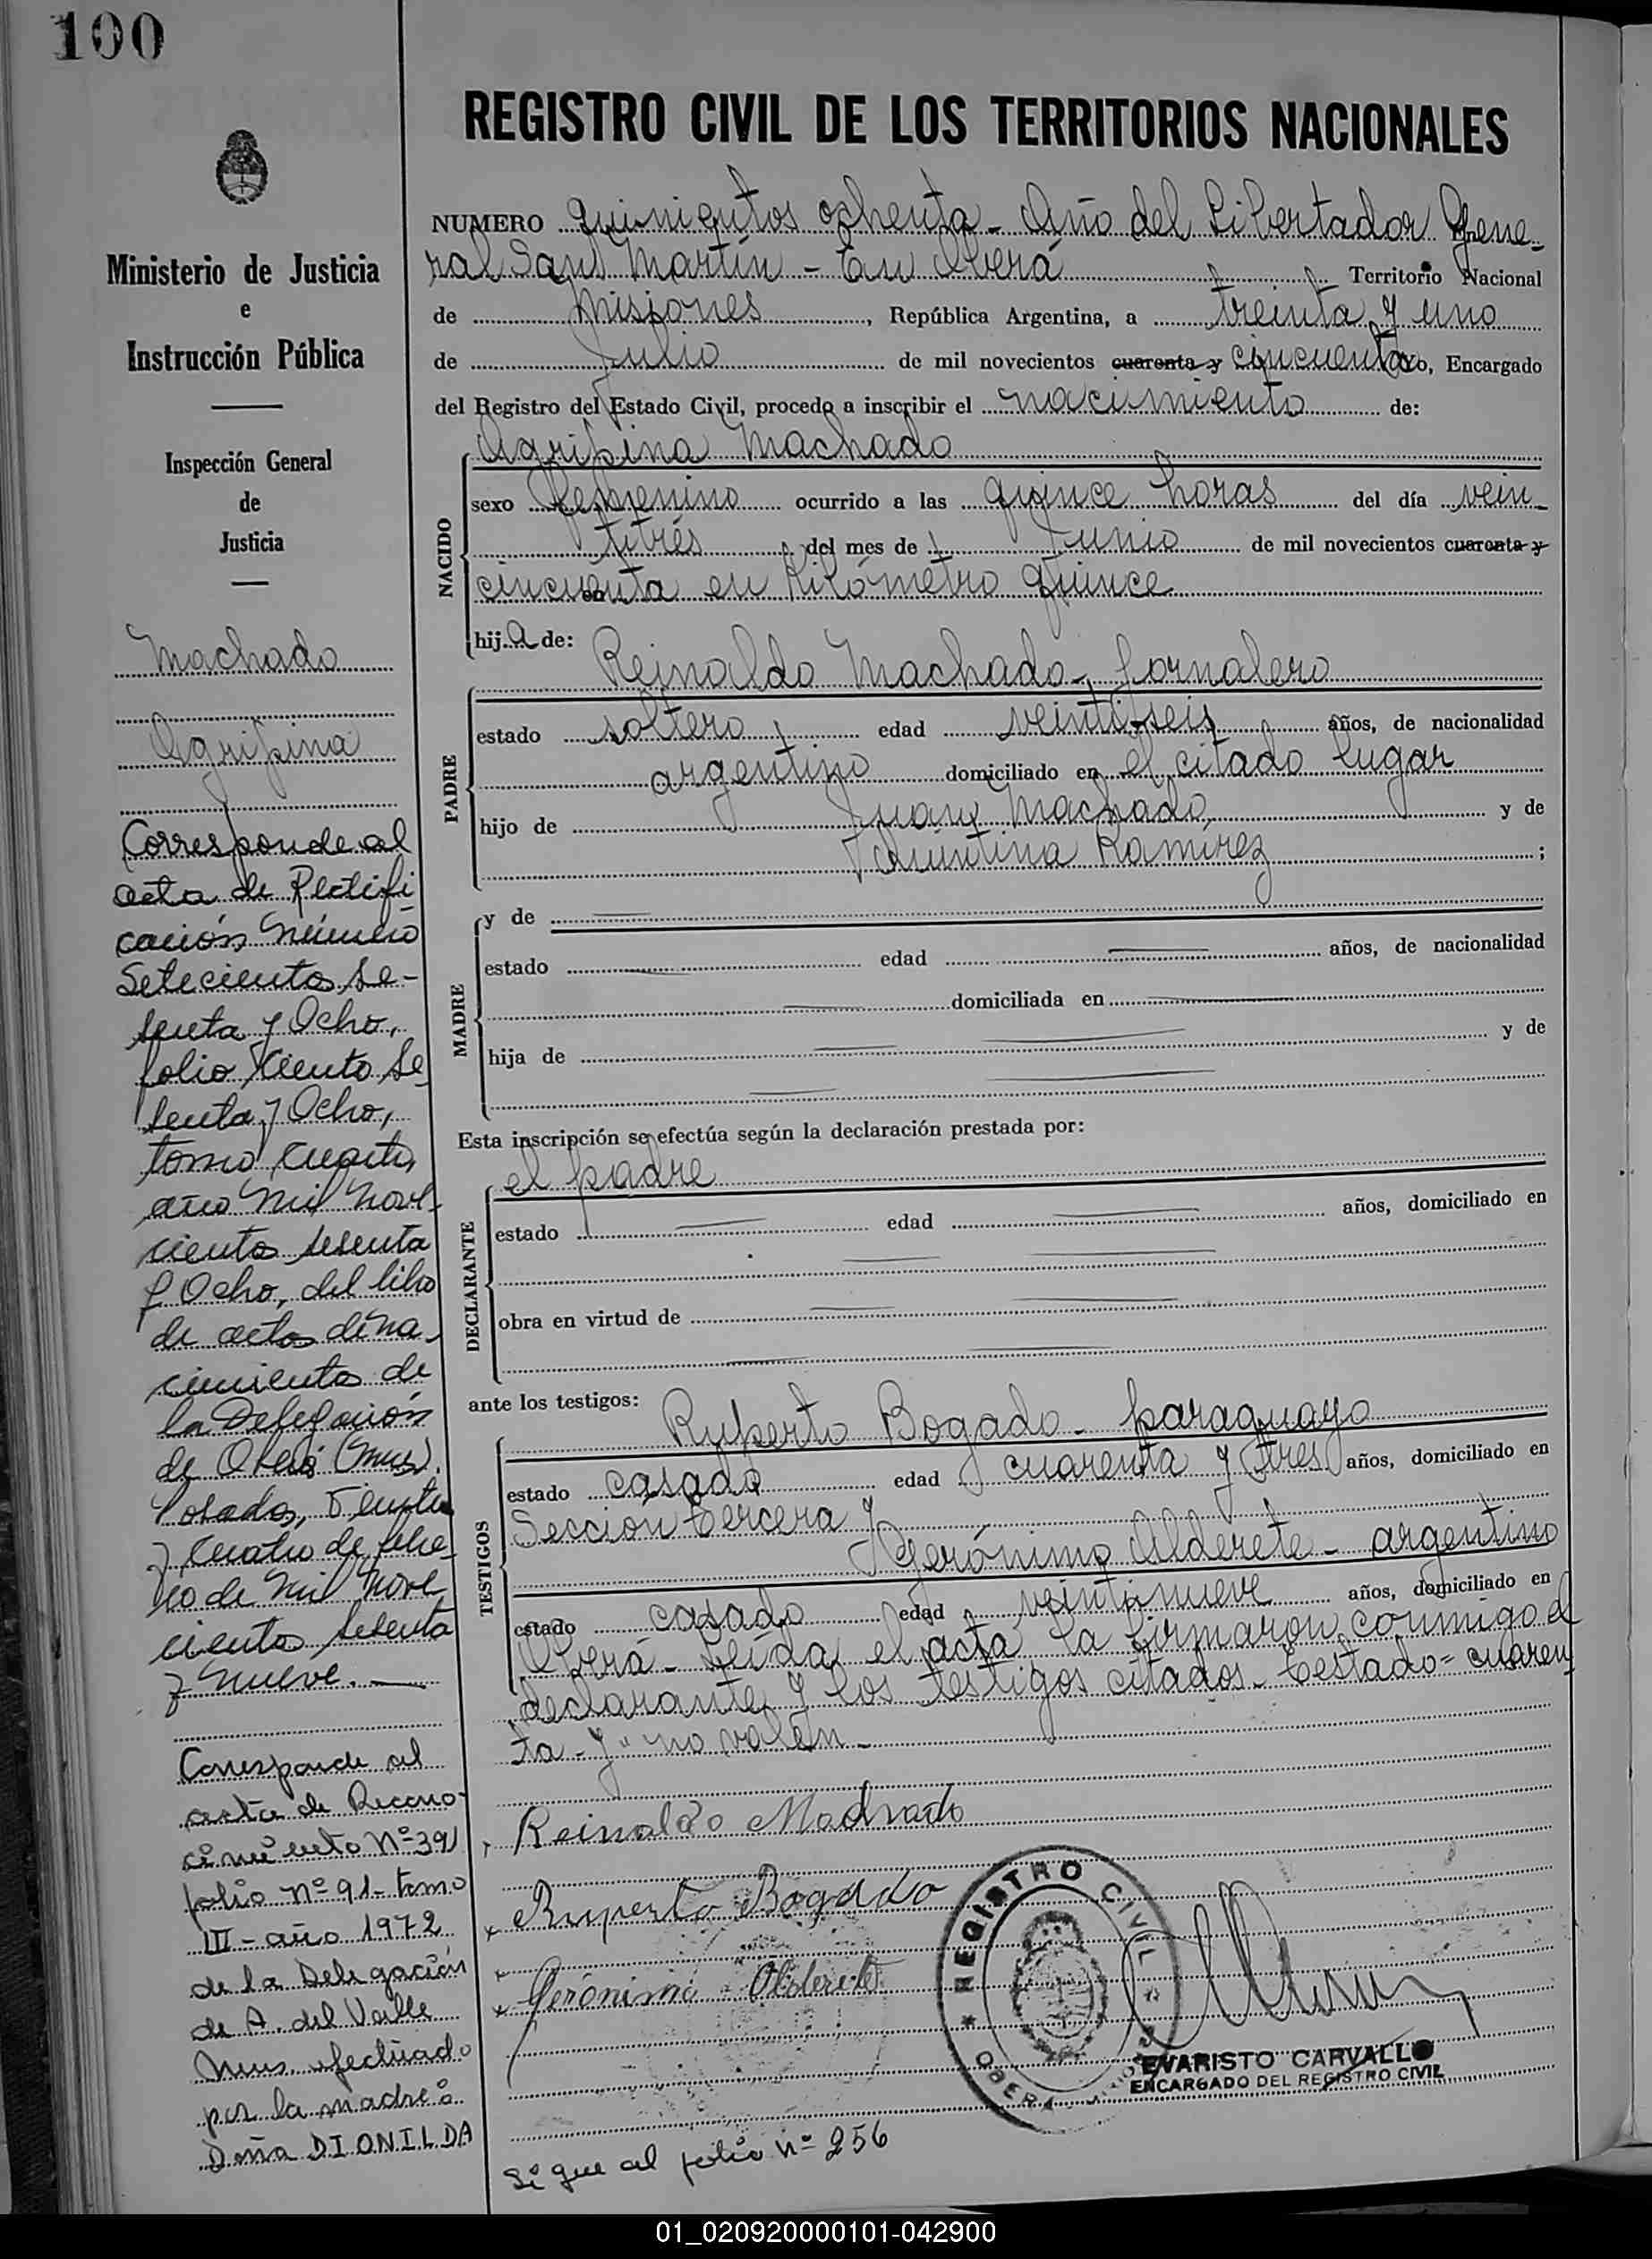 100
Ministerio de Justicia
e
Instrucción Pública
Inspección General
de
Justicia
Machado
Agripina
Corresponde al
acta de Rectifi
cación Número
Setecientos Se-
senta y Ocho,
folio Ciento Se
senta y Ocho,
tomo Cuarto,
año Mil Nove-
cientos sesenta
y Ocho, del libro
de actas de na-
cimientos de
la Delegación
de Oberá (Mnes).
Posadas, Veinti
y Cuatro de febre-
ro de Mil Nove
cientos Sesenta
y Nueve.
Corresponde al
acta de Recono-
cimiento Nº 391
folio nº 91 - tomo
III - año 1972
de la Delegación
de A. del Valle
Mnes. efectuado
por la madre
Doña DIONILDA
REGISTRO CIVIL DE LOS TERRITORIOS NACIONALES
NUMERO quinientos ochenta - Año del Libertador Gene-
ral San Martín - En Oberá Territorio Nacional
de Misiones, República Argentina, a treinta y uno
de Julio de mil novecientos cuarenta y cincuenta yo, Encargado
del Registro del Estado Civil, procedo a inscribir el nacimiento de:
Agripina Machado
NACIDO
sexo femenino ocurrido a las quince horas del día vein-
titrés del mes de Junio de mil novecientos cuarenta y
cincuenta en Kilómetro quince
hija de:
Reinaldo Machado, jornalero
PADRE
estado soltero, edad veintiseis años, de nacionalidad
argentino domiciliado en el citado lugar
hijo de Juan Machado, y de
Quintina Ramirez ;
MADRE
y de
estado edad años, de nacionalidad
domiciliada en
hija de y de
Esta inscripción se efectúa según la declaración prestada por:
el padre
DECLARANTE
estado edad años, domiciliado en
obra en virtud de
ante los testigos:
Ruperto Bogado - paraguayo
TESTIGOS
estado casado edad cuarenta y tres años, domiciliado en
Sección tercera y
Gerónimo Alderete - argentino
estado casado edad veintinueve años, domiciliado en
Oberá - Leída el acta la firmaron conmigo el
declarante y los testigos citados. Testado = cuaren
ta - y" no valen -
Reinaldo Machado
Ruperto Bogado
Gerónimo Alderete
REGISTRO CIVIL
OBERA
EVARISTO CARVALLO
ENCARGADO DEL REGISTRO CIVIL
Sigue al folio nº 256
01_020920000101-042900